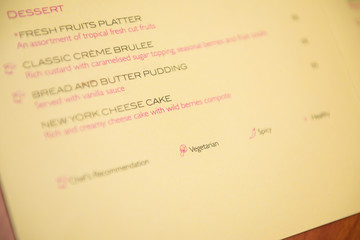 DESSERT
*FRESH FRUITS PLATTER
An assortment of tropical fresh cut fruits
CLASSIC CRÈME BRULEE
Rich custard with caramelised sugar topping, seasonal berries and fruit coulis
BREAD AND BUTTER PUDDING
Served with vanilla sauce
NEW YORK CHEESE CAKE
Rich and creamy cheese cake with wild berries compote
Chef's Recommendation Vegetarian Spicy Healthy